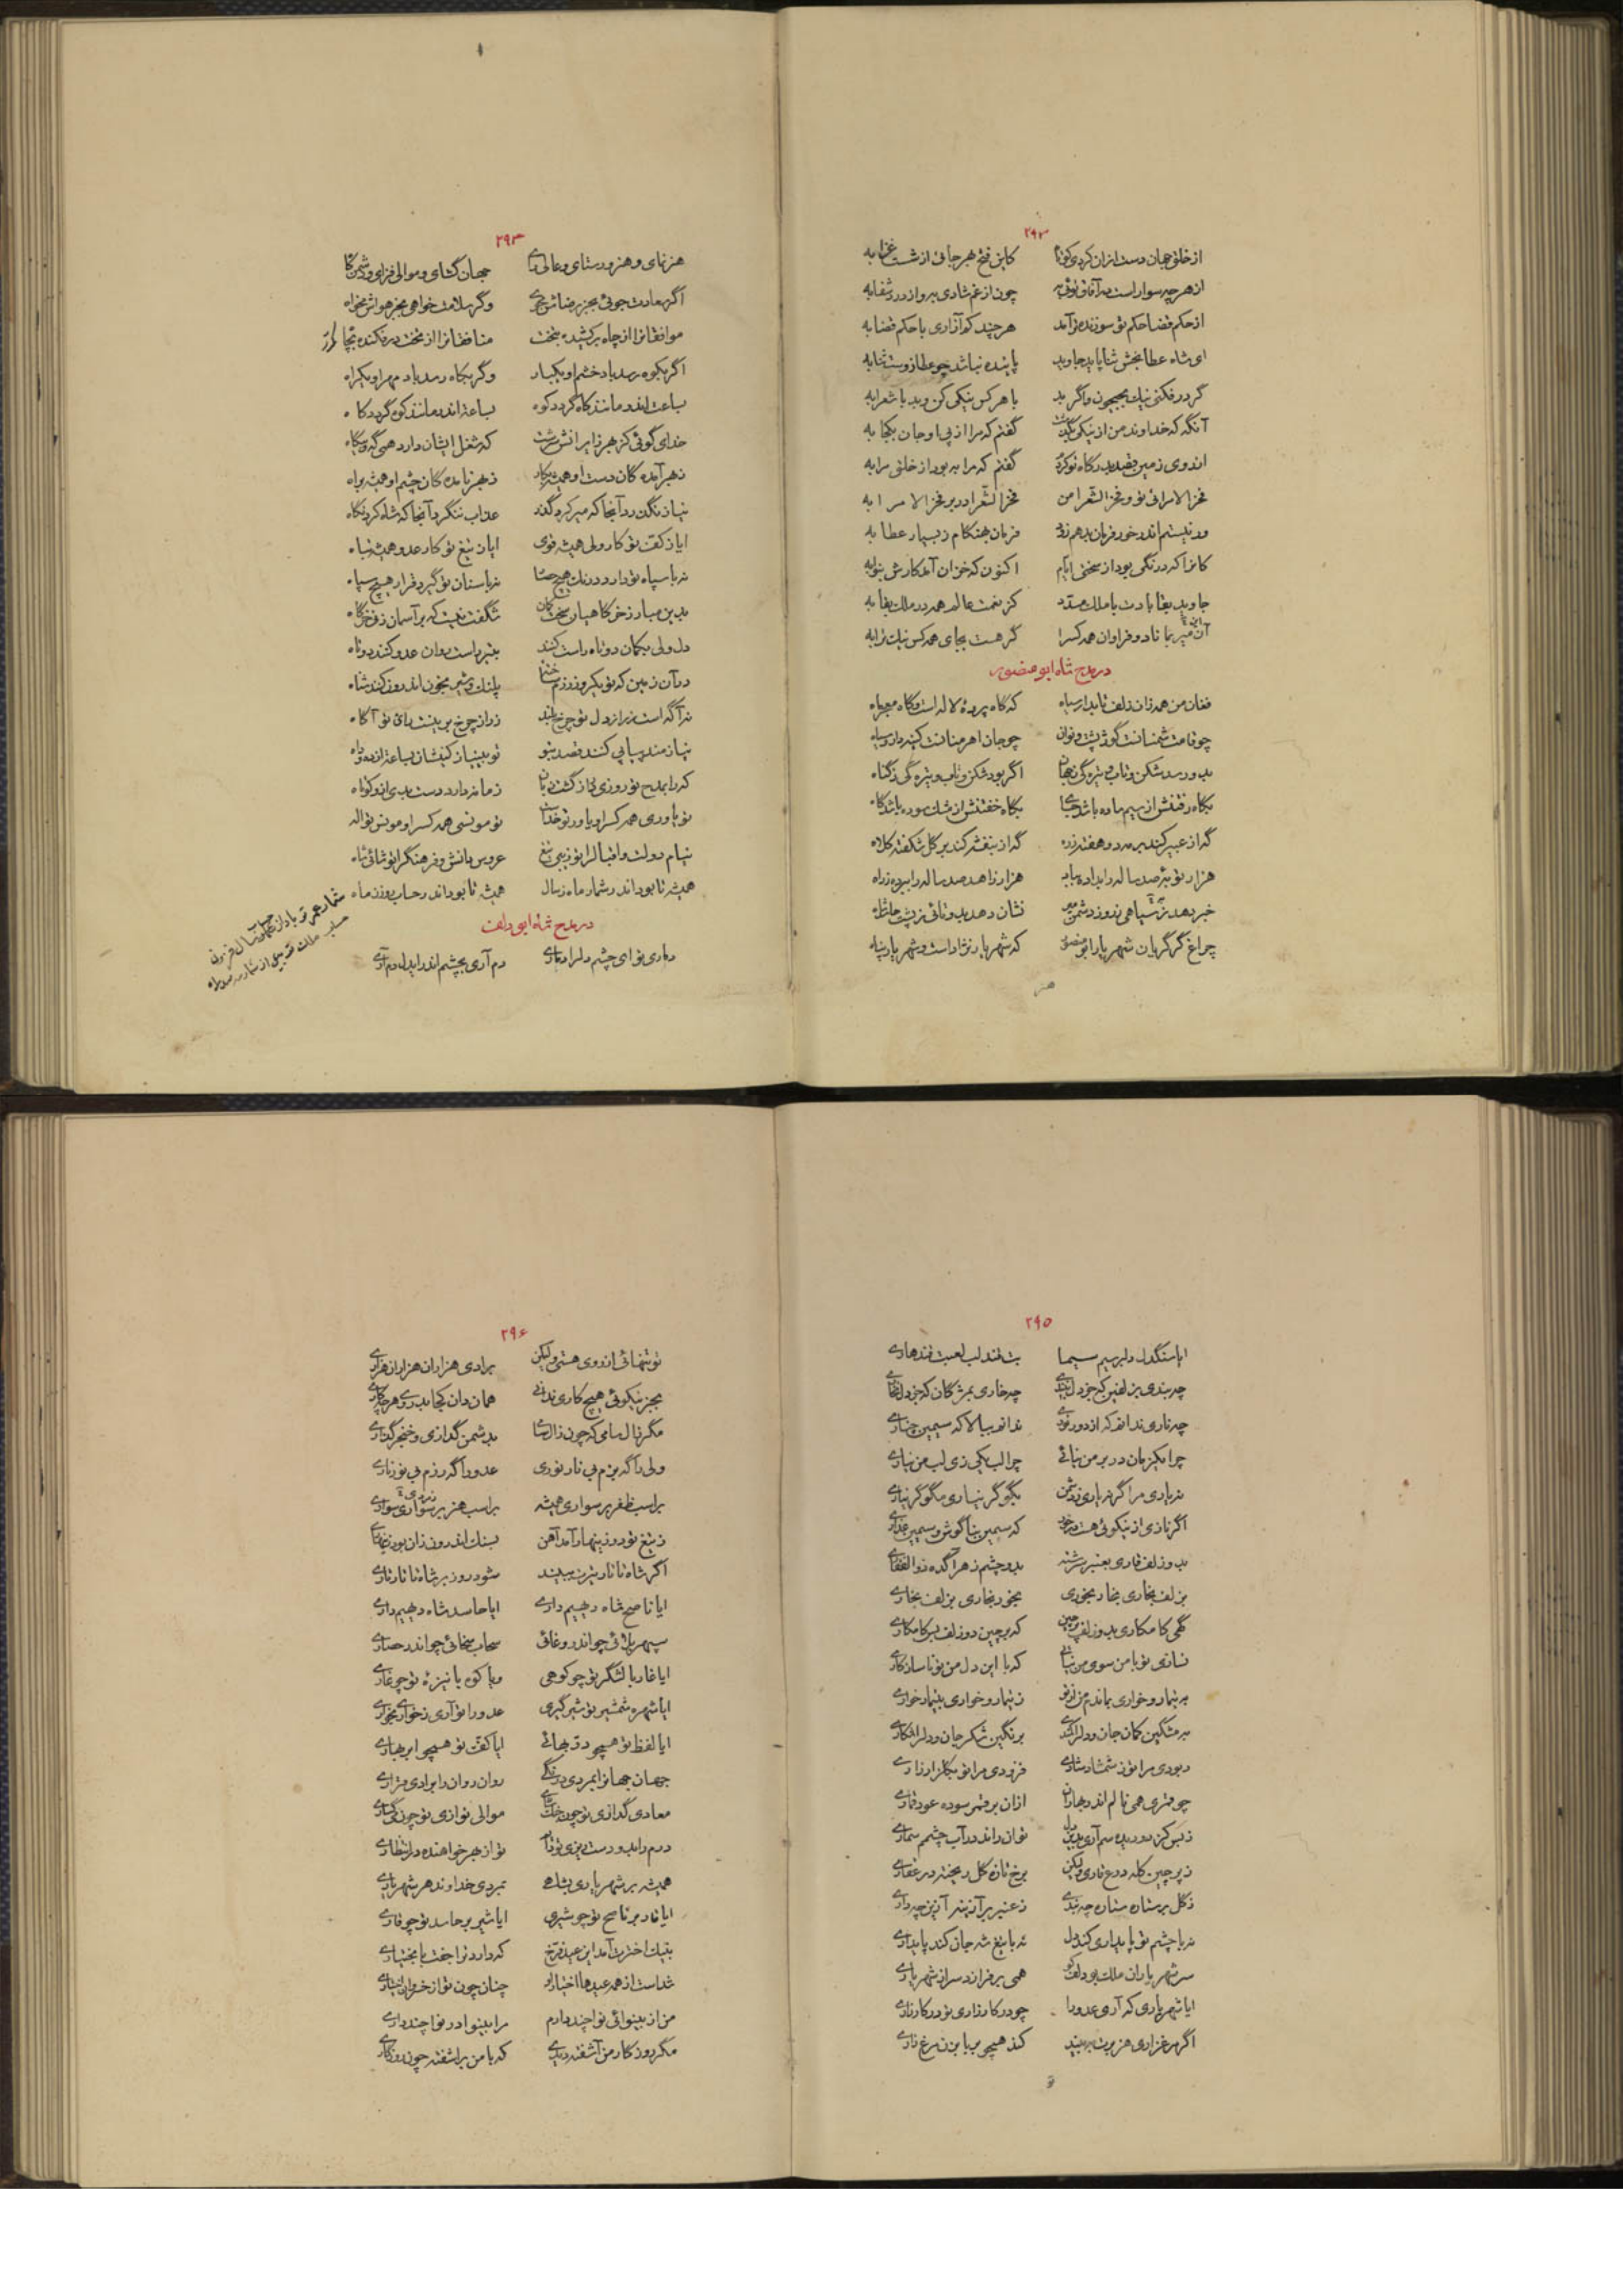 ۲۹۲
از خلق جهان دست ازان کردی کوتاه کاین فتح هر جائی از شست غزا به
از هر چه سوار است به آفاق توئی به چون از غم شادی به و از درد شفا به
از حکم قضا حکم تو سوزنده تر آمد هر چند که آزاری با حکم قضا به
ای شاه عطا بخش ثنا یابد جاوید پاینده نباشد چو عطا از وست ثنا به
گر در فکنی نیک بجیحون و اگر بد با هر کس نیکی کن و بد با شعرا به
آنگه که خداوند من از نیکی گفت گفتم که مرا از پی او جان بکجا به
اندوی زمین قصد بدرگاه تو کرد گفتم که مرا به بود از خلق مرا به
فخر الامرائی تو و فخر الشعرا من فخر الشعرا در بر فخر الامرا به
ور نیستم اندر خور فرمان بدهم زود فرمان بهنگام ز بسیار عطا به
کانرا که درنگی بود از سختی ایام اکنون که خزان آمد کارش بنوا به
جاوید بقا بادت با ملکت سرمد کز نعمت عالم همه در ملک بقا به
آن میر بماناد و فراوان همه کس را کر هست بجای همه کس نیک ترا به
در مدح شاه ابو منصور
فغان من همه زان زلف تابدار سیاه که گاه پرده لاله است و گاه معجر ماه
چو قامت شمنانست گوژ پشت و نوان چو جان اهرمنانست کینه دار و سیاه
بدو رسد شکن و تاب و تیرگی ز جهان اگر بود شکن و تاب و تیره گی ز گناه
بگاه رفتنش از سیم ساده باشد جای بگاه خفتنش از مشک سوده باشد گاه
گه از عبیر کند بر مه دو هفته زره گه از بنفشه کند بر گل شکفته کلاه
هزار توبه صد ساله را بداده بباد هزار زاهد صد ساله را ببرده ز راه
خبر دهد ز سیاهی بروز دشمن میر نشان دهد بدوتائی ز پشت حاسد شاه
چراغ گرگریان شهریار ابو منصور که شهریار نژاد است و شهریار پناه
هنر
۲۹۳
هنر نمای و هنرور ستای و عالی رای جهان گشای و موالی فزای و دشمن کاه
اگر سعادت جوئی بجز رضاش مجوی وگر سلامت خواهی بجز هواش مخواه
موافقانرا از چاه برکشیده بتخت منافقانرا از تخت در فکنده بچاه
اگر بکوه رسد باد خشم او یکبار وگر بکاه رسد باد مهر او یکراه
بساعت اندر مانند کاه گردد کوه بساعت اندر مانند کوه گردد کاه
خدای گوئی کز بهر زایرانش سرشت که شغل ایشان دارد همی گه و بیگاه
ز بهر آمده گان دست او همیشه بکار ز بهر نامده گان چشم او همیشه براه
نیاز نگذرد آنجا که میر کرد گذر عذاب ننگرد آنجا که شاه کرد نگاه
ایا ز کف تو کار ولی همیشه قوی ایا ز تیغ تو کار عدو همیشه تباه
نه با سپاه تو دارد درنگ هیچ حصار نه با سنان تو گیرد قرار هیچ سپاه
دل ولی بکمان دوتاه راست کنند بتیر راست روان عدو کنند دوتاه
در آن زمین که تو یکروز رزم ساخته پلنگ و شیر بخون اندرون کنند شناه
نه آگه است ز راز دل تو چرخ بلند ز راز چرخ برینست رای تو آگاه
نیازمند بپای کنند قصد بتو
که را بمدح تو روزی زبان گشته بان زمانه دارد دست بدی ازو کوتاه
تو یاوری همه کس را و یاور تو خدای تو مونسی همه کس را و مونس تو اله
نیام دولت و اقبال را تو زیبی تیغ عروس دانش و فرهنگ را تو شائی شاه
همیشه تا بود اندر شمار ماه ز سال همیشه تا بود اندر حساب روز ز ماه
شمار عمر تو باد از حساب سال فزون
حساب ملک تو بیش از شمار
در مدح شاه ابی دلف
دماری تو ای چشم دلرا دماری دم آری بچشم اندر ایدل دم آری
۲۹۵
ایا سنگدل دلبر سیم سیما بت قند لب لعبت قندهاری
چه بندی بزلفین که جز دل نبندی چه خاری بمژگان که جز دل نخاری
چه ناری ندانم که از دور نوری ندانم ببالا که سیمین چناری
چرا یکزمان در بر من نیائی چرا لب یکی زی لب من نیاری
نه یاری مرا گر نه یاری ز دشمن بگو گر نیاری مگو گر نیاری
اگر نازی از نیکوئی هست در خور که سیمین بناگوش و سیمین عذاری
بدو زلف قاری بعنبر سرشته بدو چشم زهر آگده ذو الفقاری
بزلف بخاری بخار بخوری بخور بخاری بزلف بخاری
گهی کامکاری بدو زلف پرچین که پرچین دو زلف بس کامکاری
نسازی تو با من سوی من نیائی که با این دل من تو ناسازگاری
به تیمار و خواری بماندم من از تو ز تیمار و خواری به تیمار خواری
به مشکین کمان جان و دلرا کمندی برنگین شکر جان و دلرا شکاری
ربودی مرا تو ز شمشاد شادی فزودی مرا تو بگلزار زاری
چو قمری همی نالم اندر بهاران ازان بر قمر سوده عود قماری
ز بس کز دو دیده سم آری بدین دل توان راند در آب چشمم سماری
ز پرچین کله درع قاری ولیکن برخ تازه گل ریخته در عقاری
ز گل بر ستاره ستاره چه بندی ز عنبر بر آذینه آذین چه داری
نه با چشم تو پایداری کند دل نه با تیغ شه جان کند پایداری
سر شهریاران ملک بو دلف کو همی برفرازد سر از شهریاری
ایا شهریاری که آری عدو را چو در کارزاری تو در کار زاری
اگر مرغزاری هژبرت ببیند کند همچو بر بابزن مرغ زاری
تو
۲۹۶
تو تنهائی از روی هستی ولیکن برادی هزاران هزاران هزاری
بجز نیکوئی هیچ کاری ندانی همان دان کجا بدروی هر چه کاری
مگر زال سامی که چون زال سامی بدشمن گدازی و خنجر گذاری
ولی را گه بزم بی نار نوری عدو را گه رزم بی نور ناری
بر اسب ظفر بر سواری همیشه بر اسب هنر بر سواری سواری
ز تیغ تو در زینهار آمد آهن بسنگ اندرون زان بود زینهاری
اگر شاه تاتار تیرت ببیند شود روز بر شاه تاتار تاری
ایا ناصح شاه دیهیم داری ایا حاسد شاه دیهیم داری
سپهر بلائی چو اندر وغائی سحاب سخائی چو اندر حصاری
ایا غار با لشگر تو چو کوهی و یا کوه با نیزه تو چو غاری
ایا شهره شمشیر تو شیر گیری عدو را تو آری ز خواری بخواری
ایا لفظ تو همچو در بهائی ایا کف تو همچو ابر بهاری
جهان جهانرا بمردی درنگی روان روان را برادی قراری
معادی گدازی تو چون خشم گیری موالی نوازی تو چون می گساری
درم را بدو دست ریزی تو دایم تو از بهر خواهنده در انتظاری
همیشه بر شهریاری بشاهی بمردی خداوند هر شهریاری
ایا قار بر ناصح تو چو شیری ایا شیر بر حاسد تو چو قاری
بنیک اختری آمد این عید فرخ که دارد ترا جفت با بختیاری
شداست از همه عیدها اختیار او چنان چون تو از خسروان اختیاری
من از بینوائی نوا چند دارم مرا بینوا در نوا چند داری
مگر روزگار من آشفته دیدی که با من برآشفته چون روزگاری